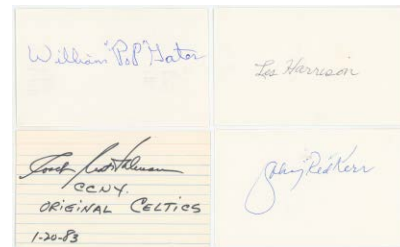 William "Pop" Gates
Les Harrison
CCNY.
ORIGINAL CELTICS
1-20-83
Johnny "Red" Kerr